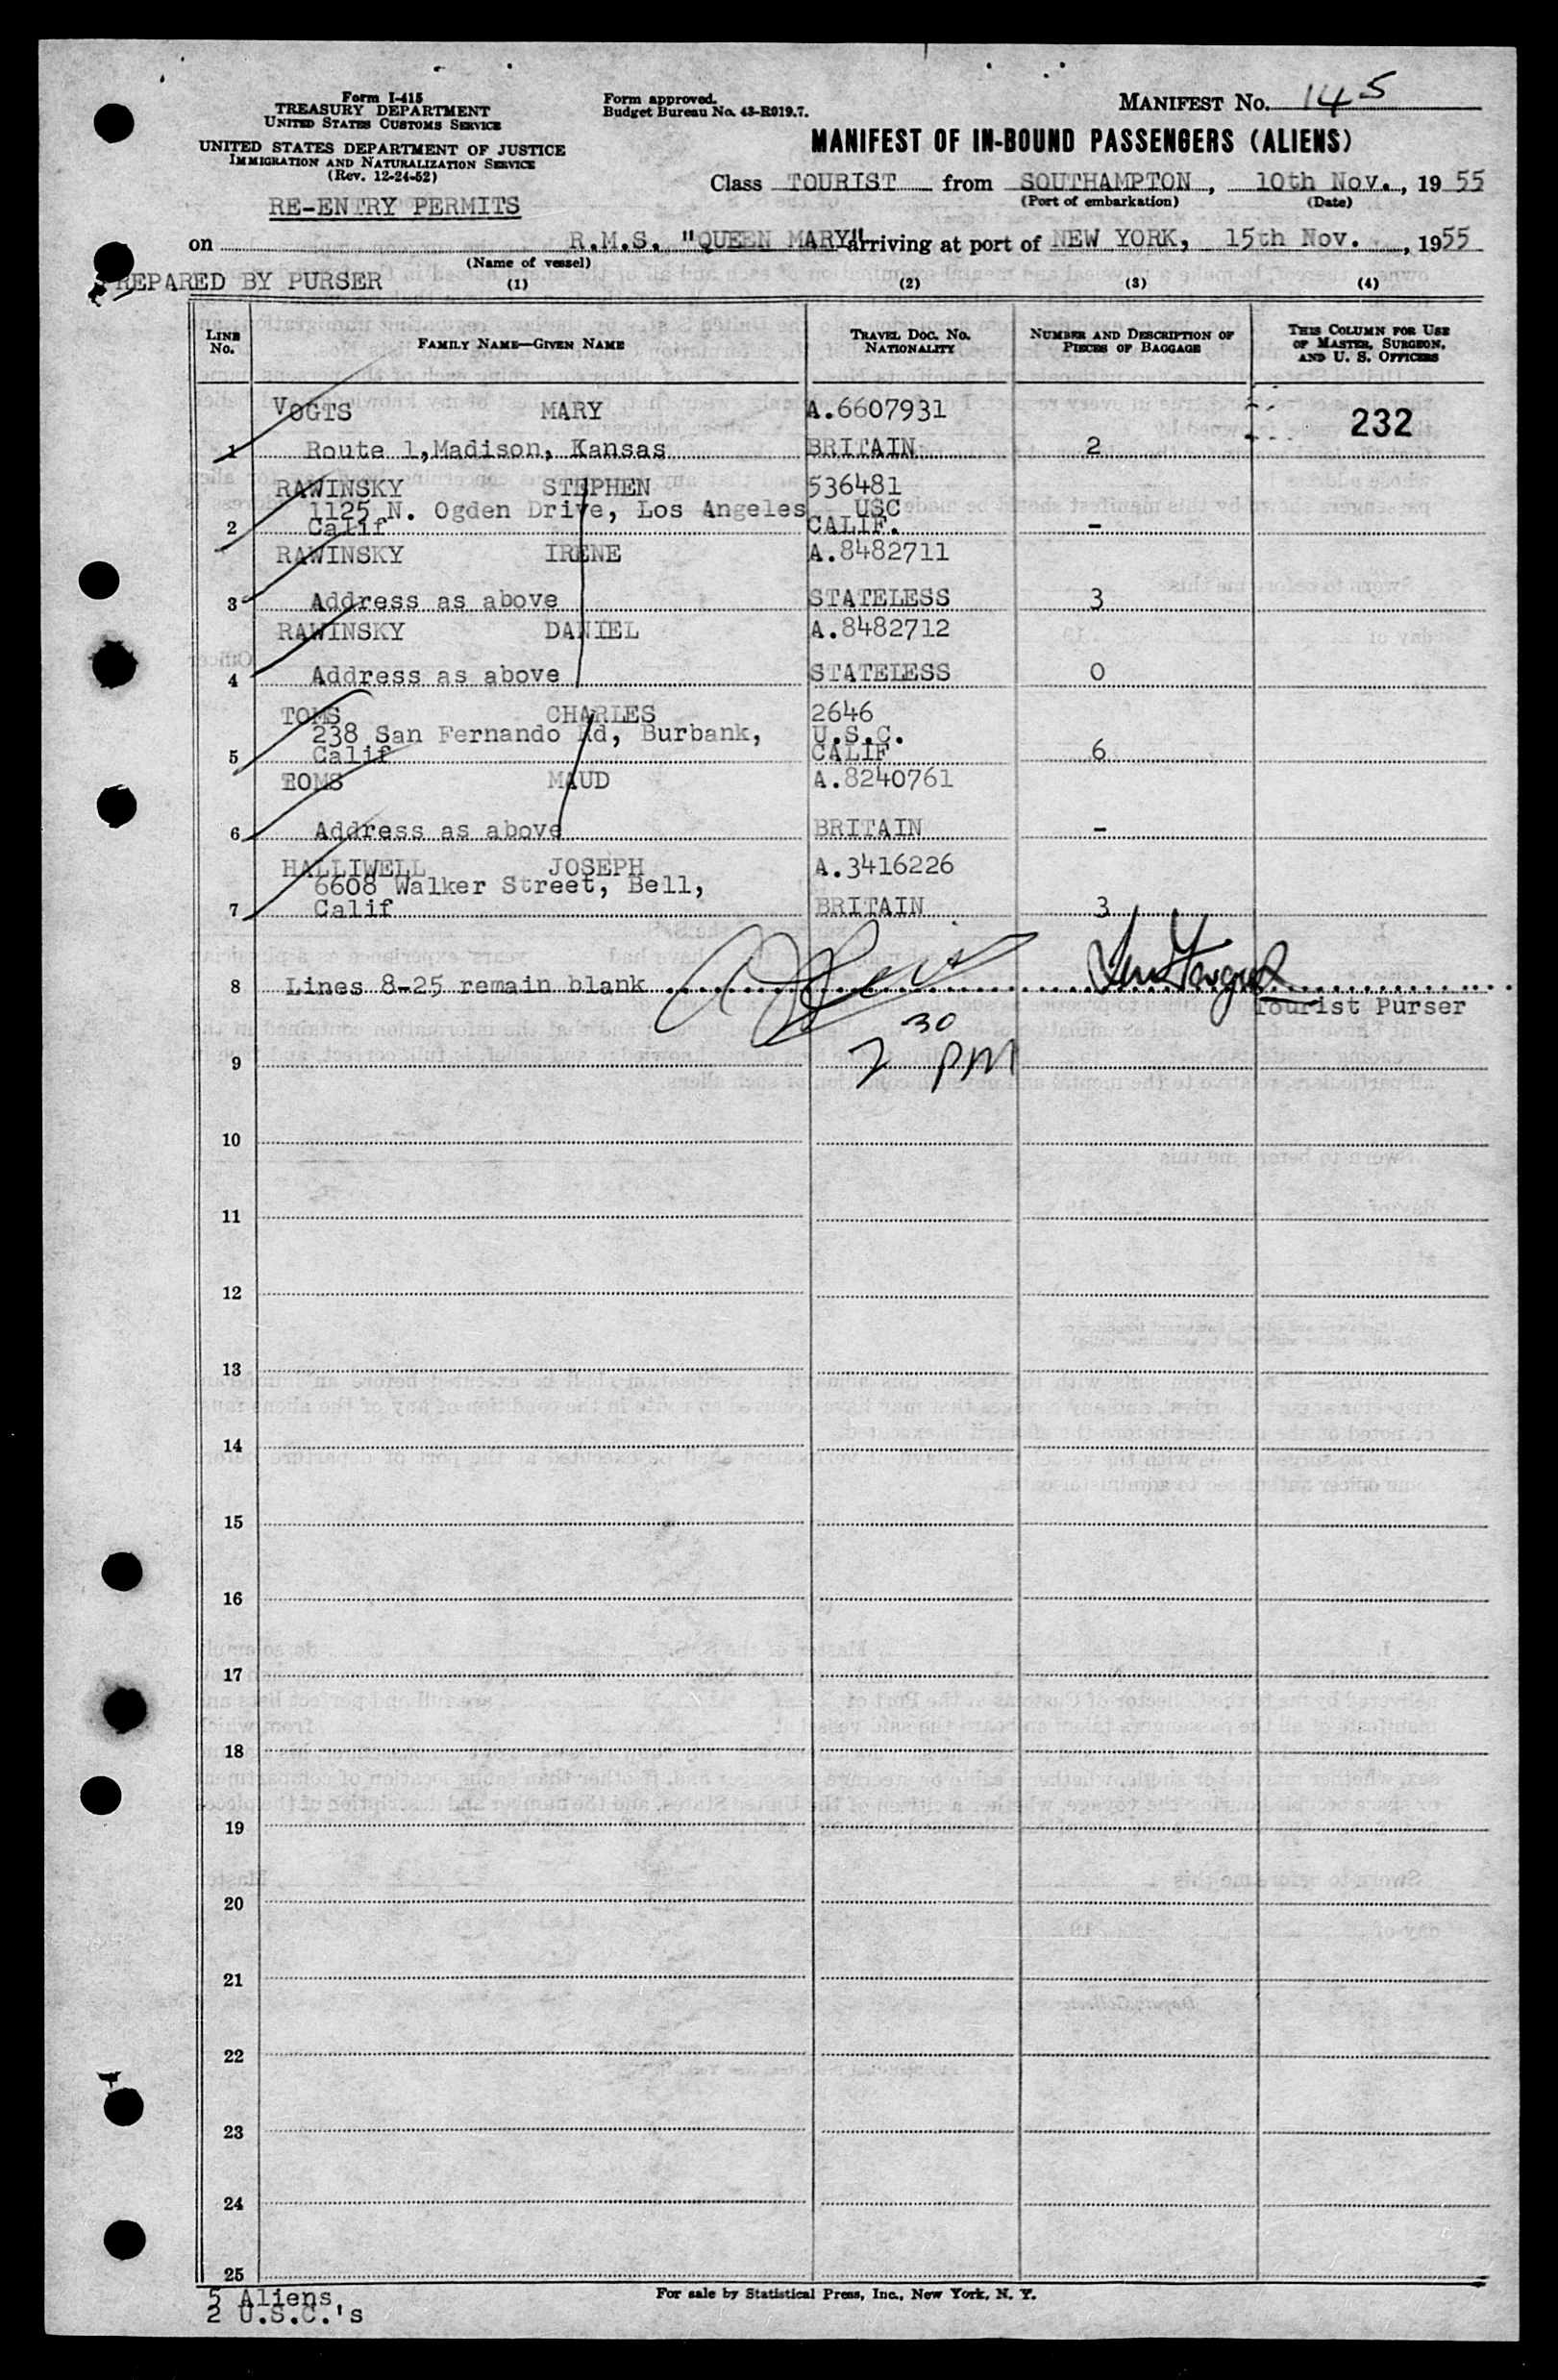 Form I-415
TREASURY DEPARTMENT
UNITED STATES CUSTOMS SERVICE
UNITED STATES DEPARTMENT OF JUSTICE
IMMIGRATION AND NATURALIZATION SERVICE
(Rev. 12-24-52)
RE-ENTRY PERMITS
Form approved.
Budget Bureau No. 43-R019.7.
MANIFEST NO. 145
MANIFEST OF IN-BOUND PASSENGERS (ALIENS)
Class TOURIST from SOUTHAMPTON, 10th Nov., 1955
(Port of embarkation) (Date)
on R.M.S. "QUEEN MARY" arriving at port of NEW YORK, 15th Nov., 1955
(Name of vessel)
PREPARED BY PURSER
(1) (2) (3) (4)
LINE No. FAMILY NAME—GIVEN NAME TRAVEL DOC. NO. NATIONALITY NUMBER AND DESCRIPTION OF PIECES OF BAGGAGE THIS COLUMN FOR USE OF MASTER, SURGEON, AND U. S. OFFICERS
VOGTS MARY A.6607931 232
1 Route 1,Madison, Kansas BRITAIN 2
RAWINSKY STEPHEN 536481
1125 N. Ogden Drive, Los Angeles USC
2 Calif CALIF. -
RAWINSKY IRENE A.8482711
3 Address as above STATELESS 3
RAWINSKY DANIEL A.8482712
4 Address as above STATELESS 0
TOMS CHARLES 2646
238 San Fernando Rd, Burbank, U.S.C.
5 Calif CALIF 6
TOMS MAUD A.8240761
6 Address as above BRITAIN -
HALLIWELL JOSEPH A.3416226
6608 Walker Street, Bell,
7 Calif BRITAIN 3
8 Lines 8-25 remain blank
Tourist Purser
30
9 7 PM
10
11
12
13
14
15
16
17
18
19
20
21
22
23
24
25
5 Aliens
2 U.S.C.'s
For sale by Statistical Press, Inc., New York, N. Y.